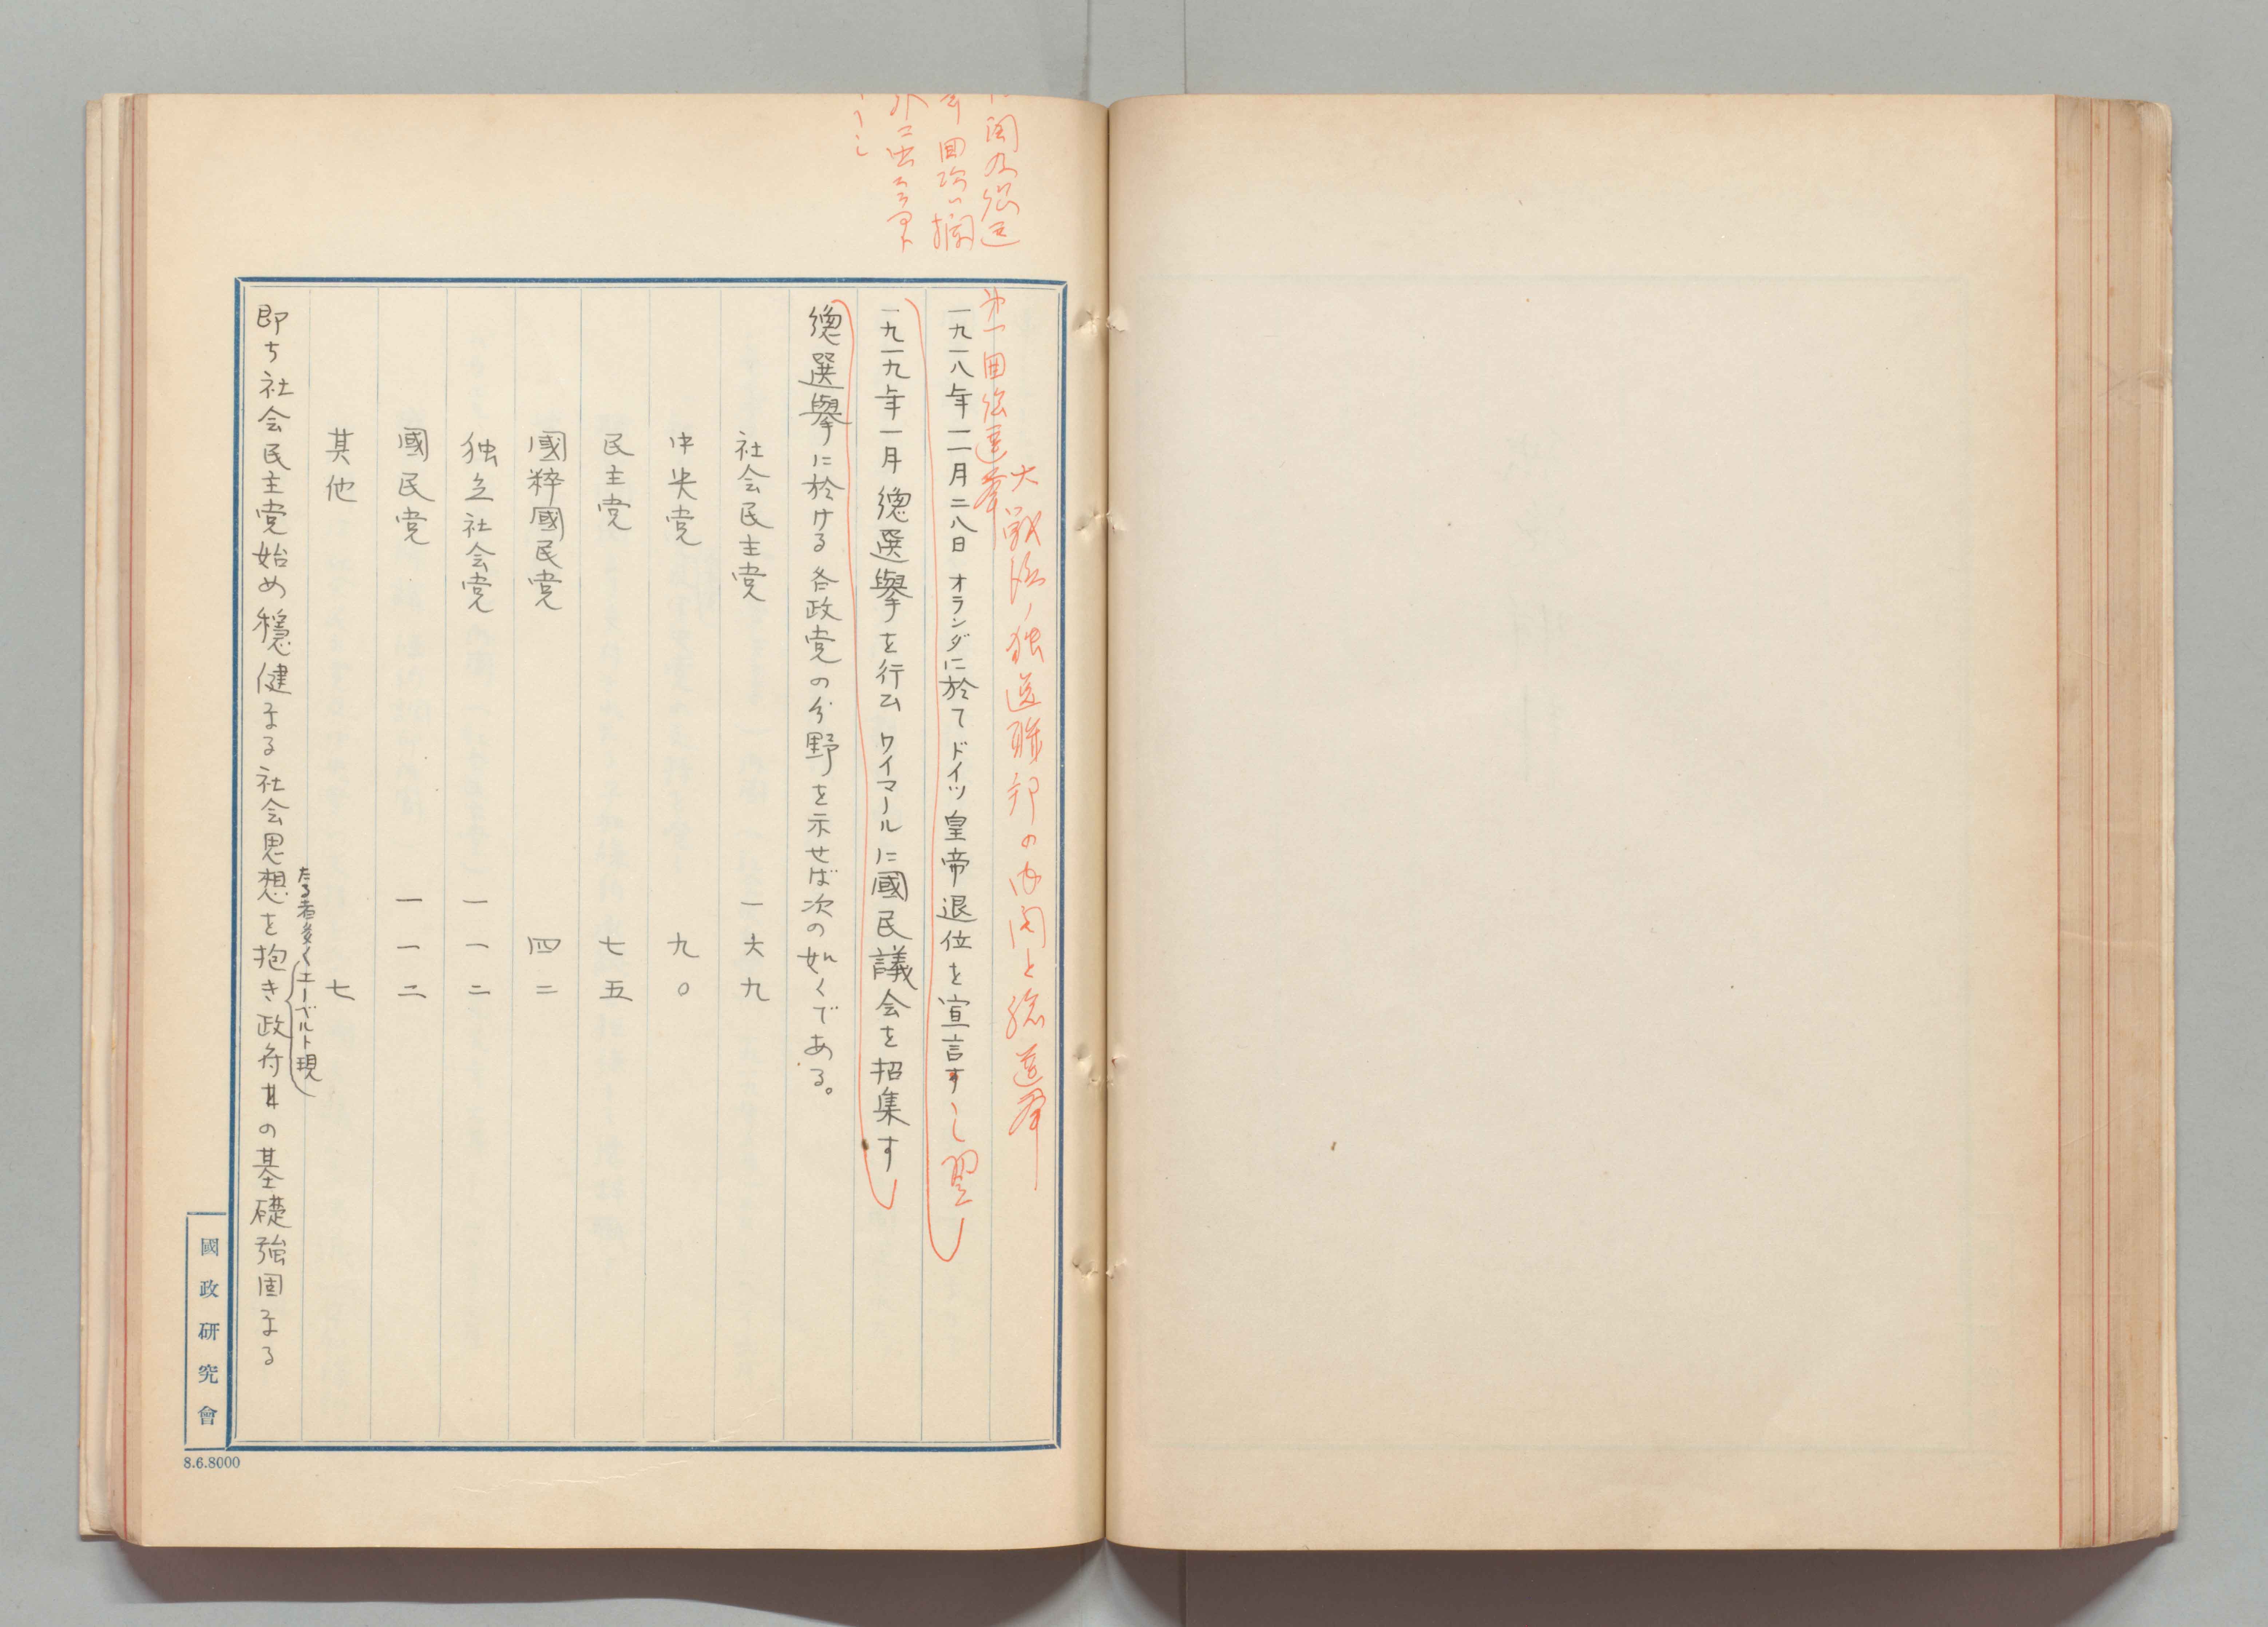 大戦後ノ独逸聯邦の内閣と総選挙
第一回総選挙
一九一八年一一月二八日オランダに於てドイツ皇帝退位を宣言すし翌
一九一九年一月總選擧を行ふワイマールに國民議会を招集す
總選擧に於ける各政党の分野を示せば次の如くである。
社会民主党 一六九
中央党 九〇
民主党 七五
國粹國民党 四二
独立社会党 一一二
國民党 一一二
其他 七
たる者多く(エーベルト現
即ち社会民主党始め穏健なる社会思想を抱き政府其の基礎強固なる
國政研究會
8.6.8000